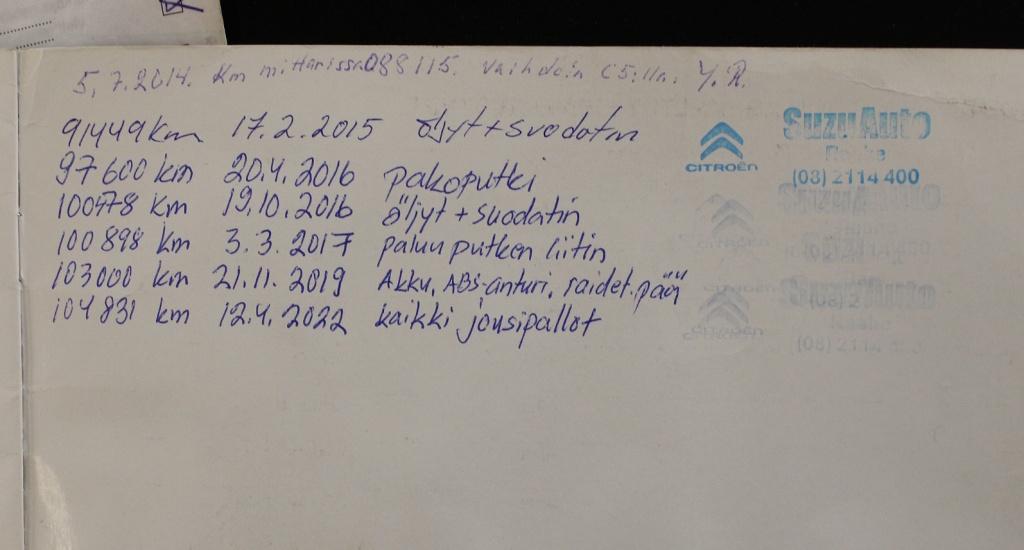 5.7.2014. Km mittarissa 088115. Vaihdoin C5:lla. Y.R.
91449 km 17.2.2015 öljyt + suodatin
97600 km 20.4.2016 pakoputki
100978 km 19.10.2016 öljyt + suodatin
100898 km 3.3.2017 paluuputken liitin
103000 km 21.11.2019 Akku, ABS-anturi, raidet.pää
104831 km 12.4.2022 kaikki jousipallot
CITROËN
SuzuAuto
Raahe
(08) 2114 400